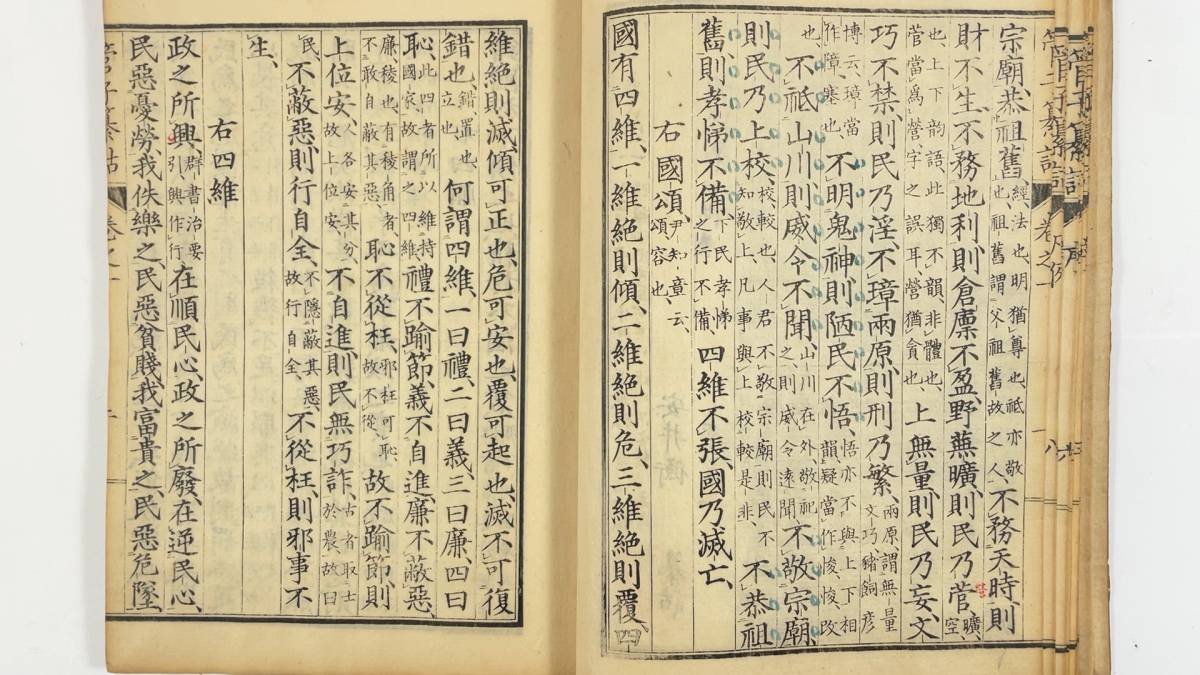 管子纂詁 卷之一 八
宗廟、恭祖舊、經法也、明猶尊也、祗亦敬也、祖舊謂父祖舊故之人、不務天時、則
財不生、不務地利、則倉廩不盈、野蕪曠、則民乃菅、曠空
也、上下韵語、此獨不韻、非體也、菅當爲營、字之誤耳、營猶貪也、上無量、則民乃妄、文
巧不禁、則民乃淫、不璋兩原、則刑乃繁、兩原謂無量文巧、豬飼彥
博云、璋當作障、塞也、不明鬼神、則陋民不悟、悟亦不與上下相韻、疑當作悛、悛、改
也、不祗山川、則威令不聞、山川在外、敬祀之、則威令遠聞、不敬宗廟、
則民乃上校、校、較也、人君不敬宗廟、則民不知敬上、凡事與上校較是非、不恭祖
舊、則孝悌不備、下民孝悌之行不備、四維不張、國乃滅亡、
右國頌、尹知章云、頌容也、
國有四維、一維絕則傾、二維絕則危、三維絕則覆、四
維絕則滅、傾可正也、危可安也、覆可起也、滅不可復
錯也、錯置也、立也、何謂四維、一曰禮、二曰義、三曰廉、四曰
恥、此四者所以維持國家、故謂之四維、禮不踰節、義不自進、廉不蔽惡、
廉、稜也、有稜角者、不敢自蔽其惡、恥不從枉、邪枉可恥、故不從、故不踰節、則
上位安、人各安其分、故上位安、不自進、則民無巧詐、古者取士於農、故曰
民、不蔽惡、則行自全、不隱蔽其惡、故行自全、不從枉、則邪事不
生、
右四維
政之所興、群書治要引興作行、在順民心、政之所廢、在逆民心、
民惡憂勞、我佚樂之、民惡貧賤、我富貴之、民惡危墜、
管子纂詁 卷之一